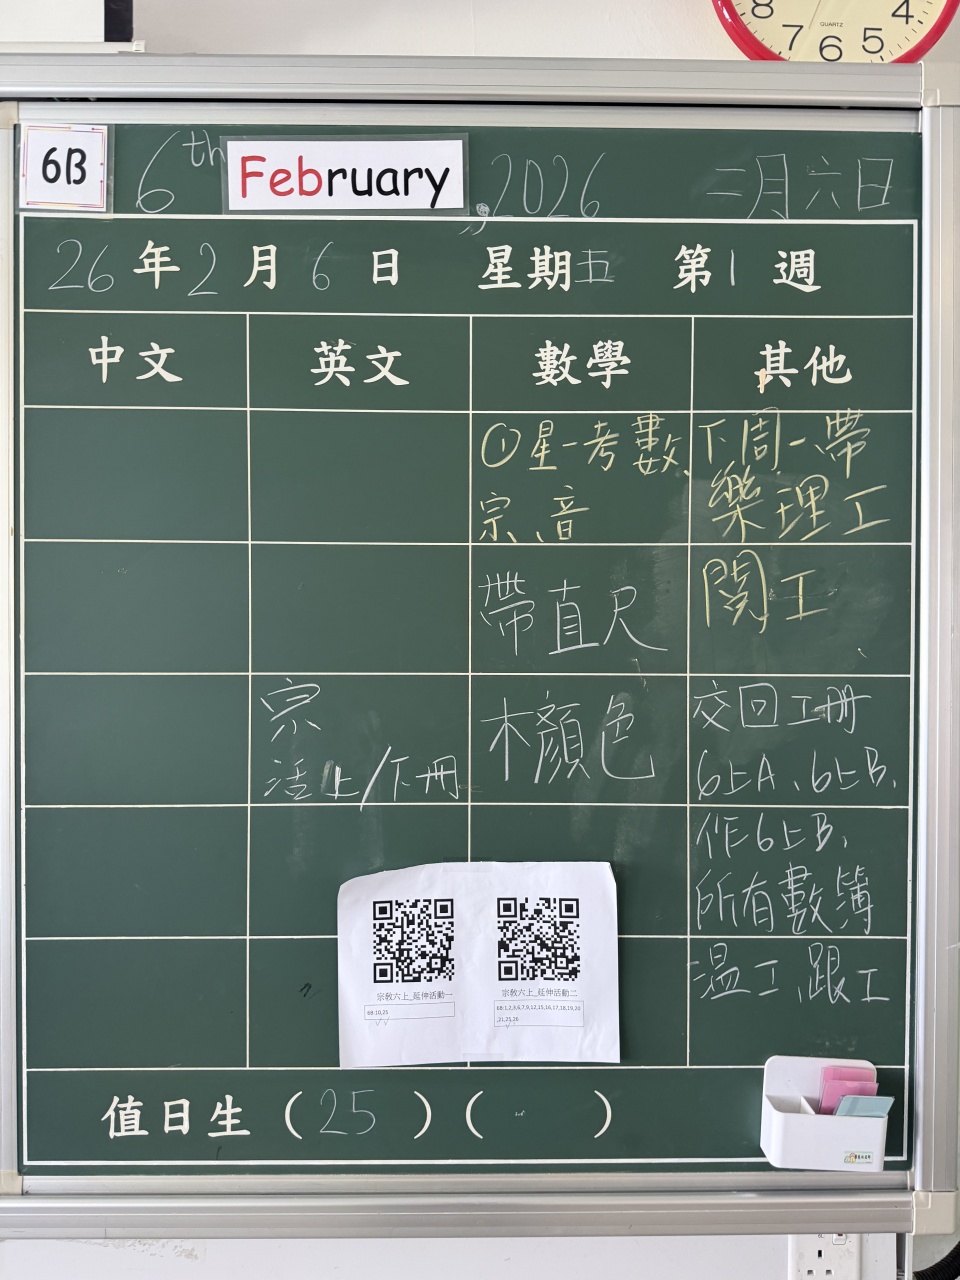 8 4
7 6 5
QUARTZ
6B
6th February, 2026 二月六日
26年2月6日 星期五 第1週
中文 英文 數學 其他
①星一考數、
宗、音
下周一、帶
樂理工
帶直尺
閱工
宗
活上/下冊
木顏色
交回工冊
6上A、6上B、
作6上B、
所有數簿
溫工、跟工
宗教六上_延伸活動一
6B:10,25
宗教六上_延伸活動二
6B:1,2,3,6,7,9,12,15,16,17,18,19,20
,21,25,26
值日生（25）（ ）